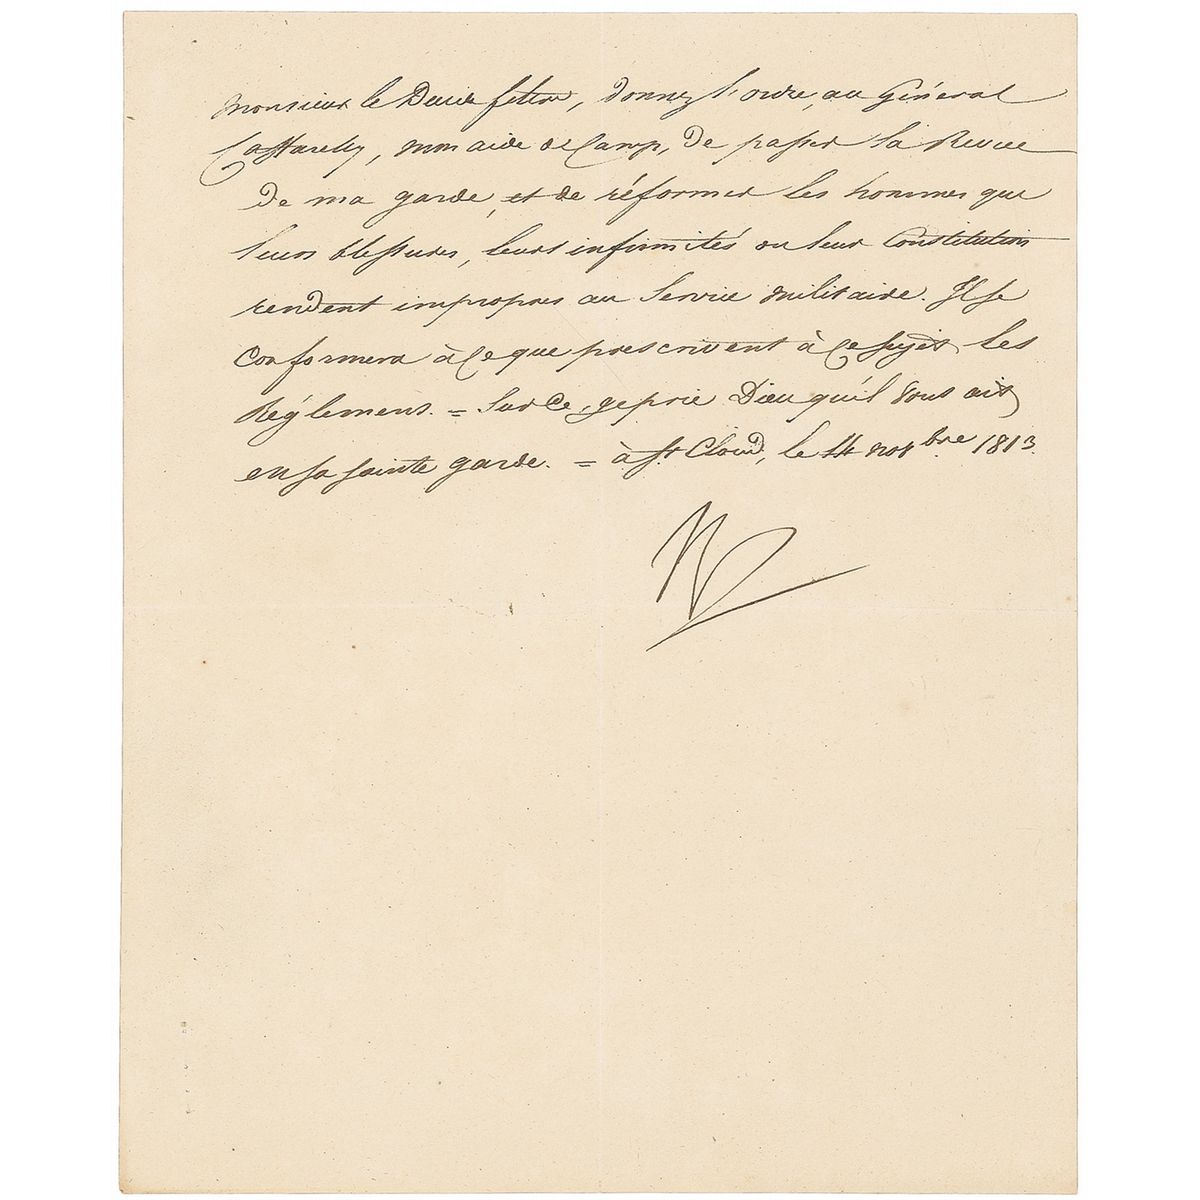 Monsieur le Duc de feltre, donnez l'ordre, au Général
Caffarelly, mon aide de Camp, de passer la Revue
De ma garde, et de réformer les hommes que
leurs blessures, leurs infirmités ou leur Constitution
rendent impropres au Service militaire. Il se
Conformera à ce que prescrivent à ce sujet les
Réglemens. = Sur Ce, je prie Dieu qu'il vous ait
en sa sainte garde. = à St. Cloud, le 14 novbre 1813.